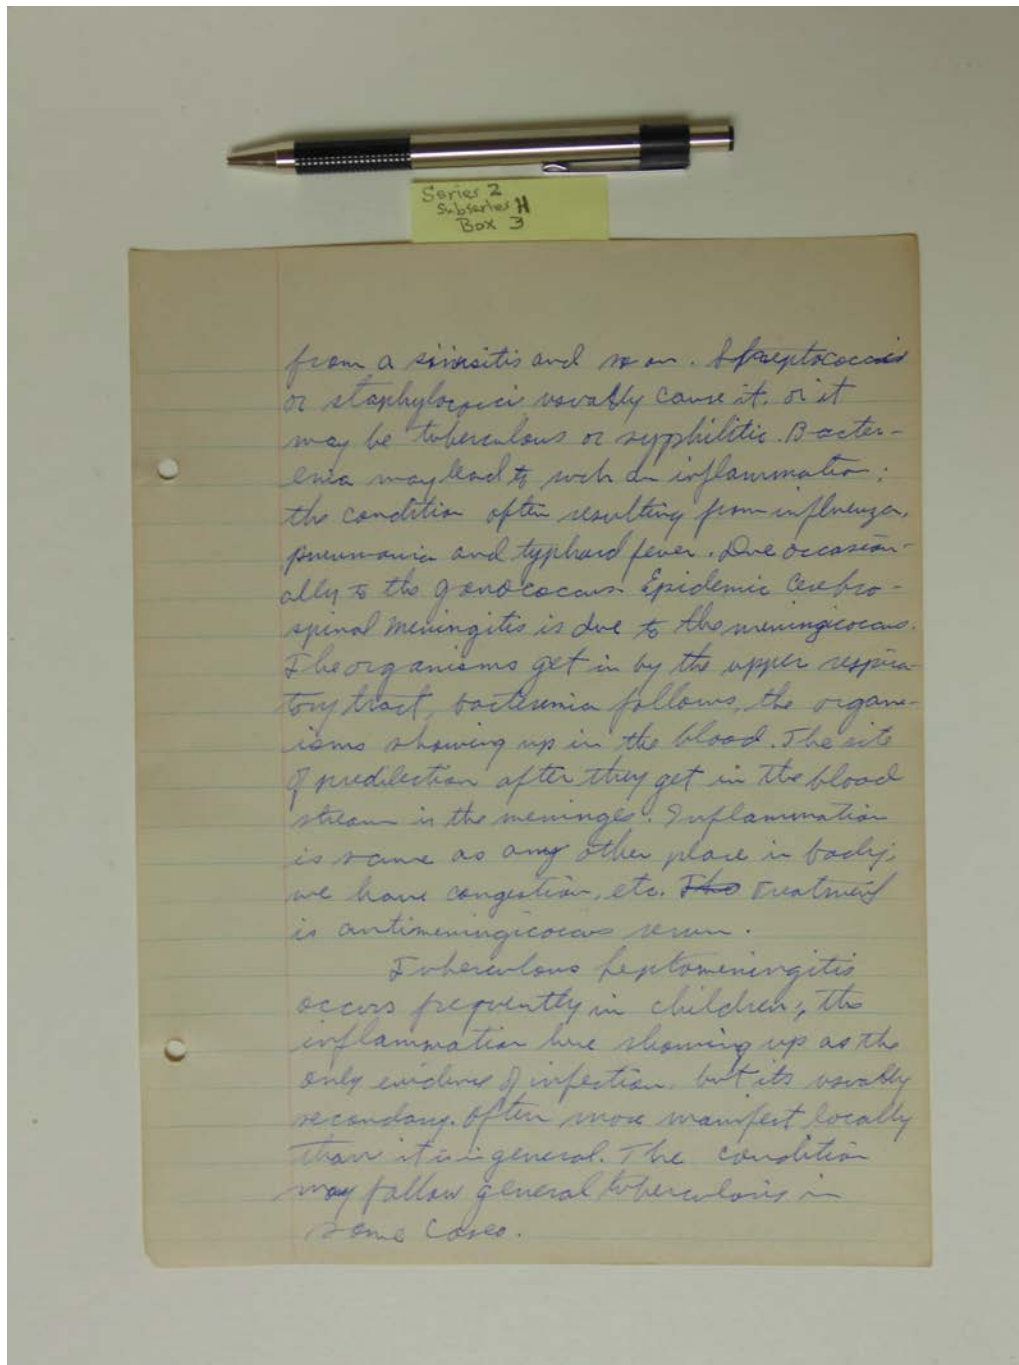 Series 2
Subseries H
Box 3
from a sinusitis and so on. Streptococcus
or staphylococci usually cause it, or it
may be tuberculous or syphilitic. Bacter-
emia may lead to such an inflammation;
the condition often resulting from influenza,
pneumonia and typhoid fever. Due occasion-
ally to the gonococcus. Epidemic Cerebro-
spinal Meningitis is due to the meningicoccus.
The organisms get in by the upper respira-
tory tract, bacteremia follows, the organ-
isms showing up in the blood. The site
of predilection after they get in the blood
stream is the meninges. Inflammation
is same as any other place in body;
we have congestion, etc. The Treatment
is antimeningicoccus serum.
Tuberculous leptomeningitis
occurs frequently in children, the
inflammation here showing up as the
only evidence of infection, but its usually
secondary. Often more manifest locally
than it is in general. The condition
may follow general tuberculosis in
some cases.